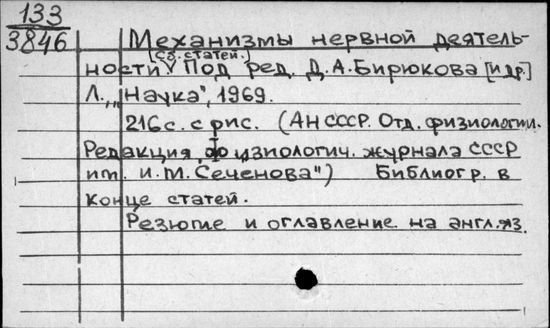 133
3846
Механизмы нервной деятель-
[Сб. статей.]
ности. Под ред. Д.А.Бирюкова [и др.]
Л., „Наука", 1969.
216 с. с рис. (АН СССР. Отд. физиологии.
Редакция „Физиологич. журнала СССР
им. И.М.Сеченова") Библиогр. в
конце статей.
Резюме и оглавление на англ.яз.